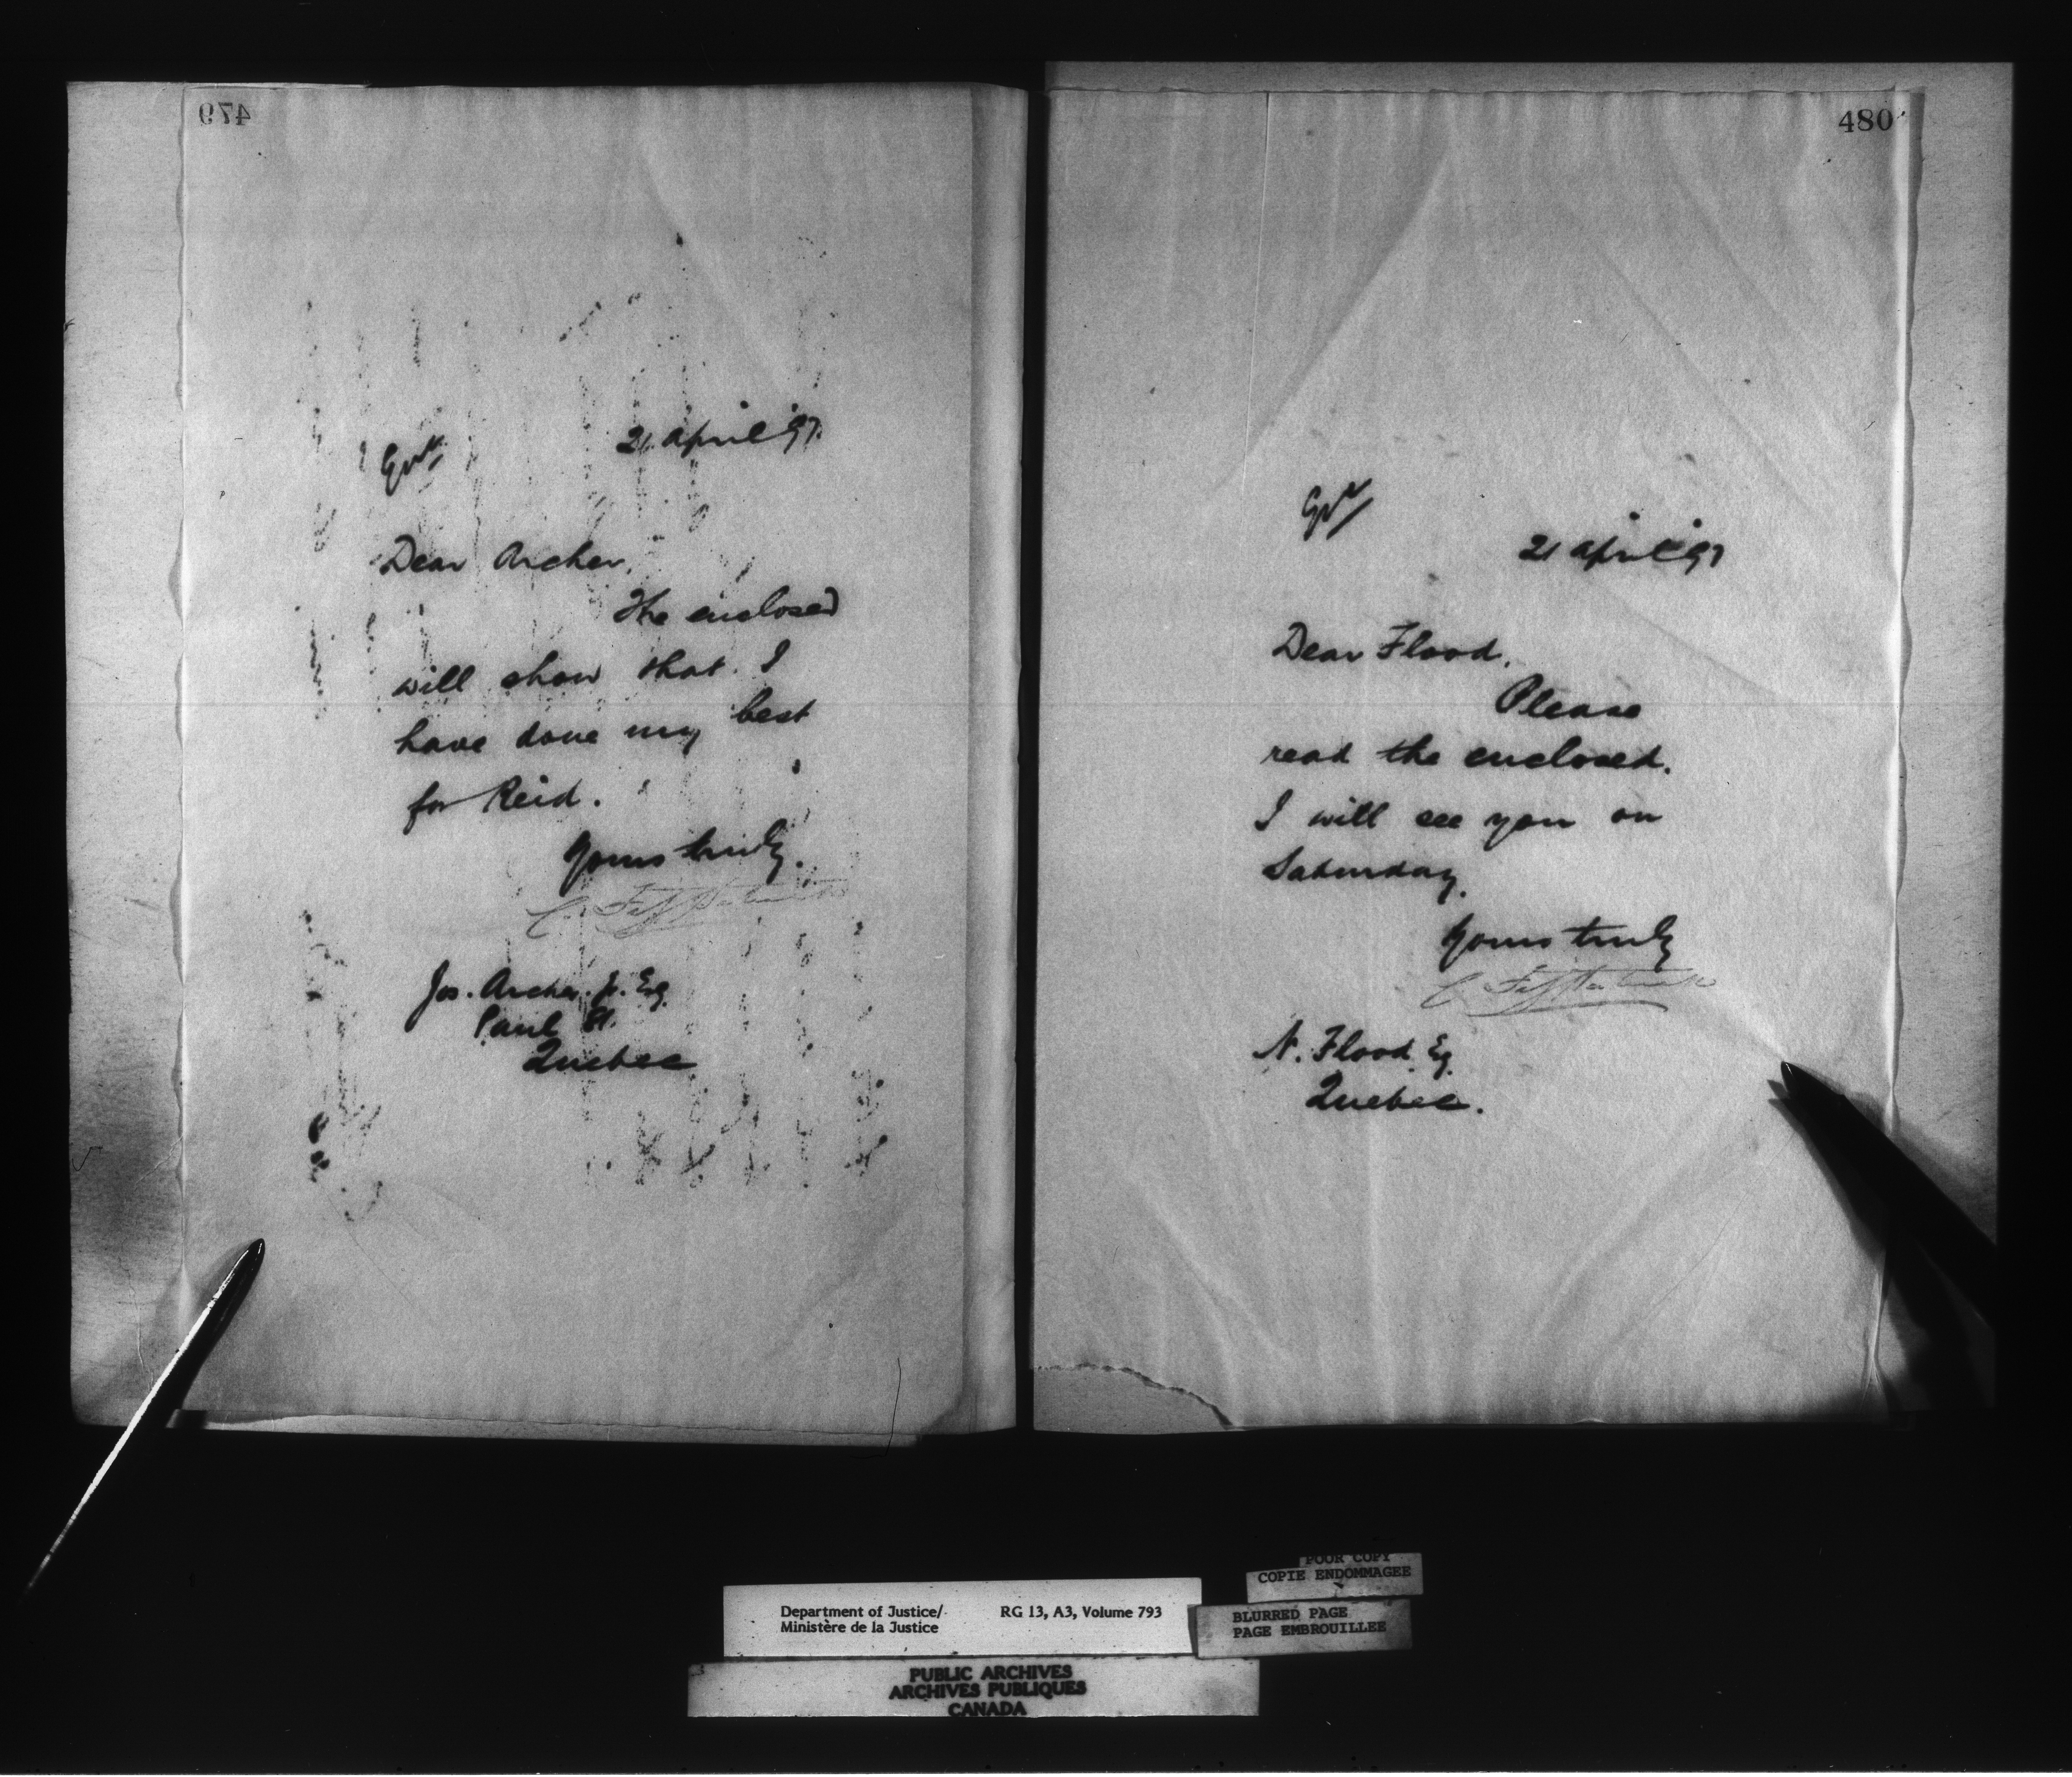 479
21 april '97.
Dear Archer,
The enclosed
will show that I
have done my best
for Reid.
Yours truly.
C. Fitzpatrick
Jos. Archer, Jr. Esq
Paul St.
Quebec
480
21 april '97
Dear Flood,
Please
read the enclosed.
I will see you on
Saturday.
Yours truly
C. Fitzpatrick
N. Flood Esq
Quebec.
POOR COPY
COPIE ENDOMMAGEE
Department of Justice/ RG 13, A3, Volume 793
Ministère de la Justice
BLURRED PAGE
PAGE EMBROUILLEE
PUBLIC ARCHIVES
ARCHIVES PUBLIQUES
CANADA